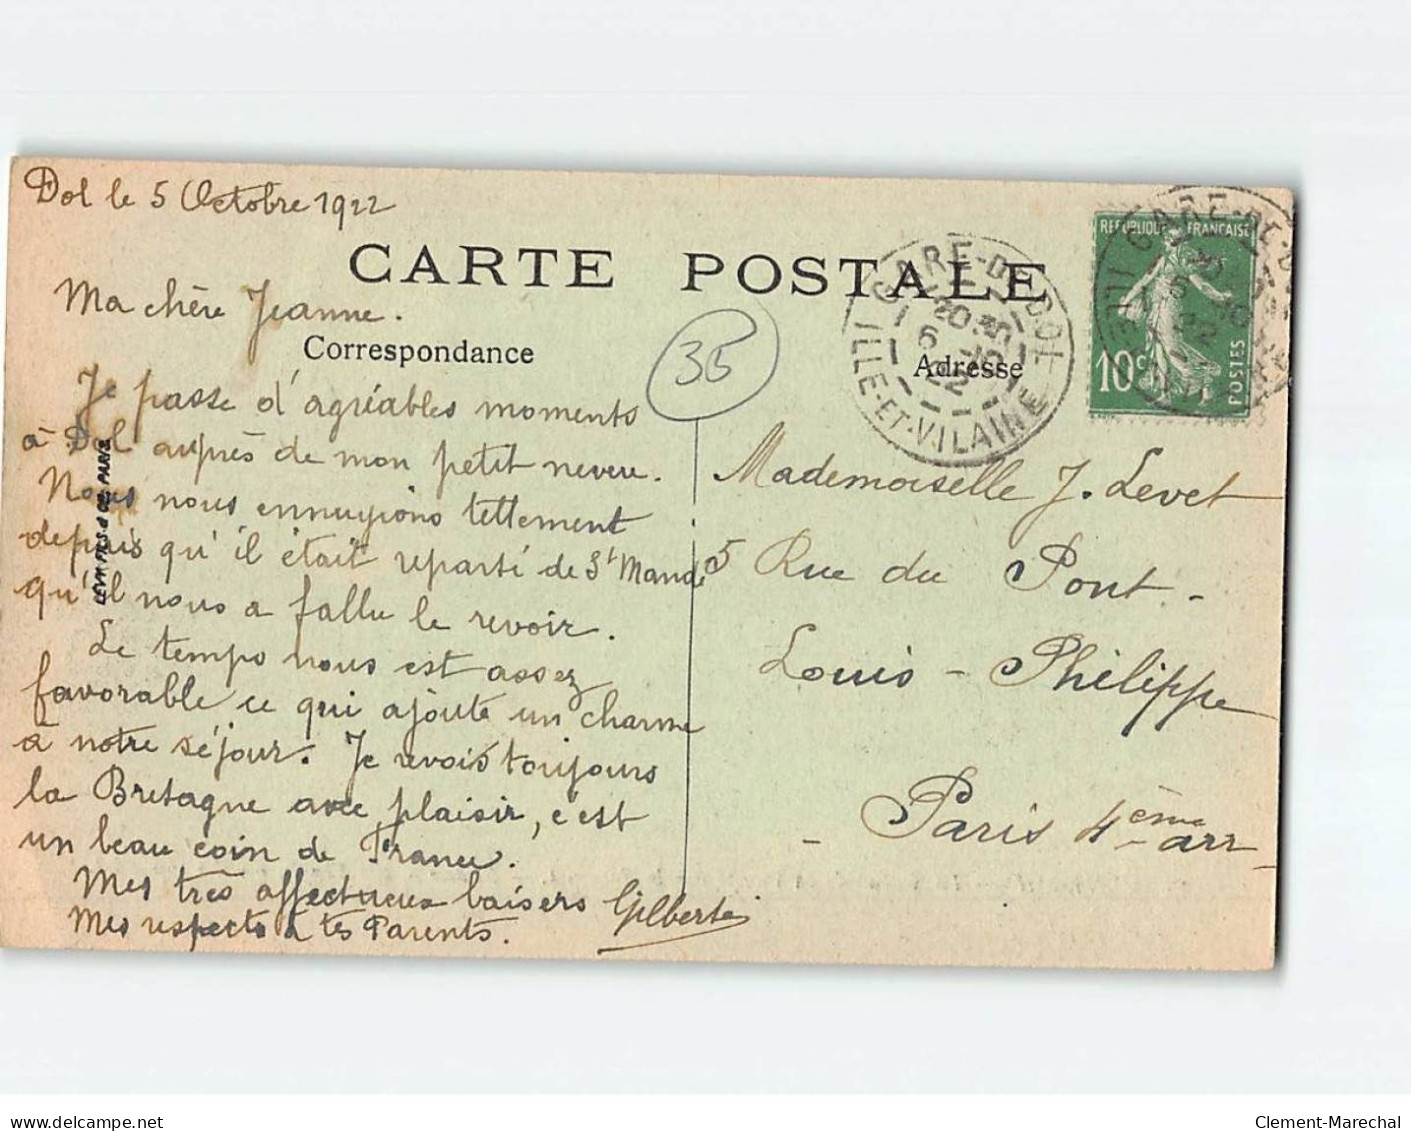 Dol le 5 Octobre 1922
CARTE POSTALE
Ma chère Jeanne.
Correspondance
35
Je passe d'agréables moments
à Dol auprès de mon petit neveu.
Nous nous ennuyions tellement
depuis qu'il était reparti de St Mandé
qu'il nous a fallu le revoir.
Le temps nous est assez
favorable ce qui ajoute un charme
à notre séjour. Je revois toujours
la Bretagne avec plaisir, c'est
un beau coin de France.
Mes très affectueux baisers Gilberte
Mes respects à tes Parents.
LEVY FILS & Cie PARIS
GARE-DE-DOL
20 30
6 - 10
22
ILLE-ET-VILAINE
Adresse
REPUBLIQUE FRANÇAISE
10c
POSTES
GARE-DE-D
ILLE
Mademoiselle J. Levet
5 Rue du Pont -
Louis - Philippe
- Paris 4ème arr -
delcampe.net
Clement-Marechal